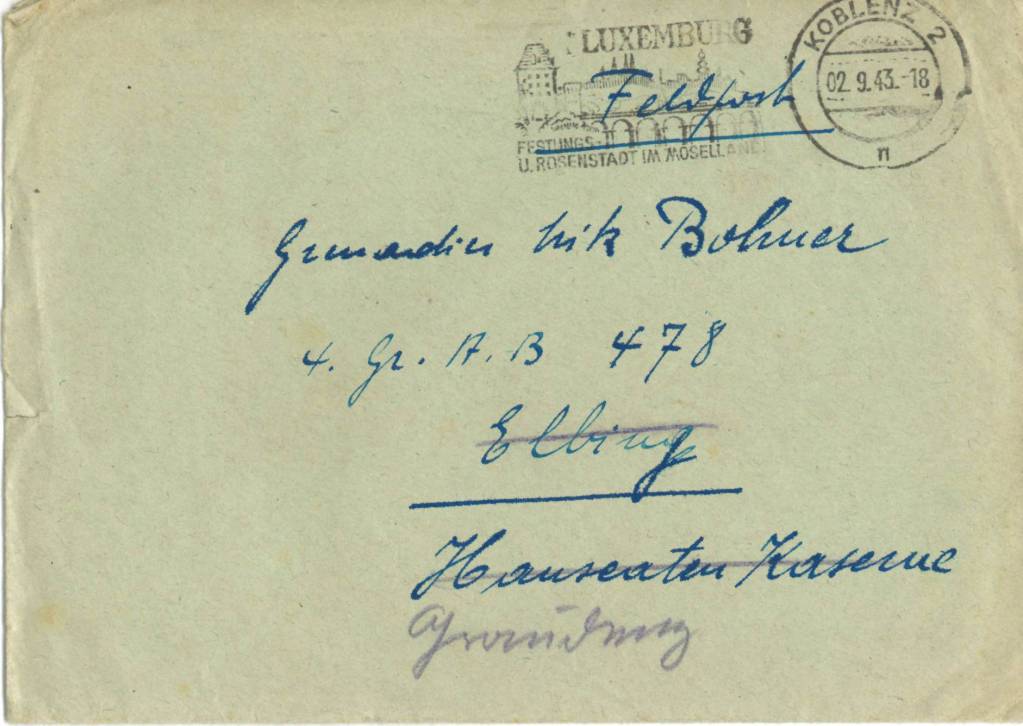 LUXEMBURG
KOBLENZ 2
02.9.43.-18
n
Feldpost
FESTUNGS-
U. ROSENSTADT IM MOSELLAND
Grenadier Nik Bohner
4. Gr. A. B 478
Elbing
Hanseaten Kaserne
Graudenz